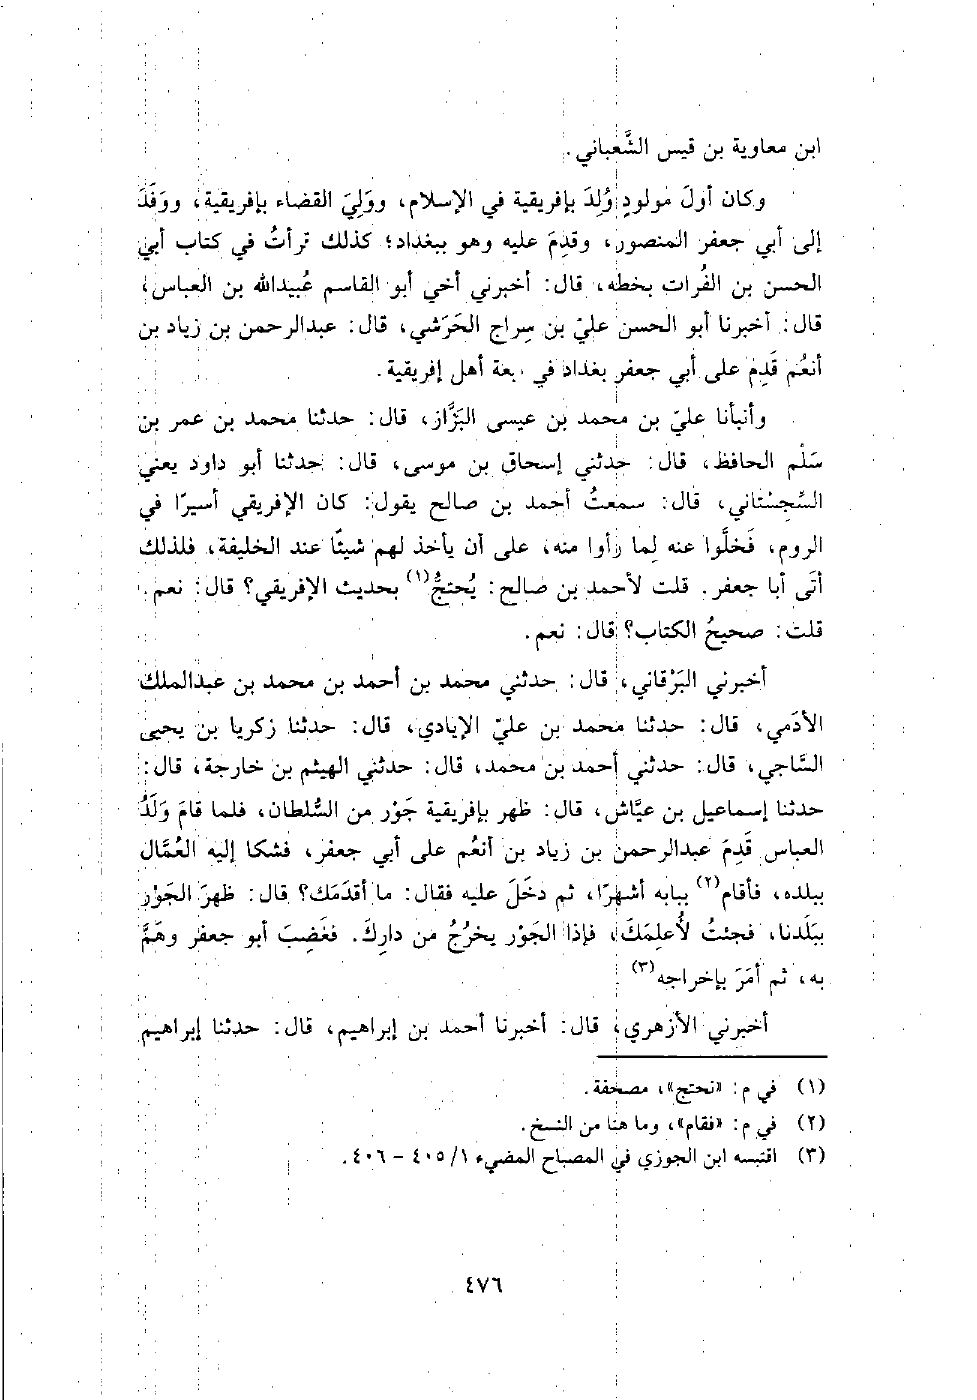 ابن معاوية بن قيس الشَّعباني.
وكان أولَ مولودٍ وُلِدَ بإفريقية في الإسلام، ووَلِيَ القضاء بإفريقية، ووَفَدَ
إلى أبي جعفر المنصور، وقَدِمَ عليه وهو ببغداد؛ كذلك قرأتُ في كتاب أبي
الحسن بن الفُرات بخطه، قال: أخبرني أخي أبو القاسم عُبيدالله بن العباس،
قال: أخبرنا أبو الحسن عليّ بن سِراج الحَرَشي، قال: عبدالرحمن بن زياد بن
أنعُم قَدِمَ على أبي جعفر بغداد في بيعة أهل إفريقية.
وأنبأنا عليّ بن محمد بن عيسى البَزَّاز، قال: حدثنا محمد بن عمر بن
سَلْم الحافظ، قال: حدثني إسحاق بن موسى، قال: حدثنا أبو داود يعني
السِّجِسْتاني، قال: سمعتُ أحمد بن صالح يقول: كان الإفريقي أسيرًا في
الروم، فَخلَّوا عنه لِما رأوا منه، على أن يأخذ لهم شيئًا عند الخليفة، فلذلك
أتَى أبا جعفر. قلت لأحمد بن صالح: يُحتجُّ(١) بحديث الإفريقي؟ قال: نعم.
قلت: صحيحُ الكتاب؟ قال: نعم.
أخبرني البَرْقاني، قال: حدثني محمد بن أحمد بن محمد بن عبدالملك
الأدَمي، قال: حدثنا محمد بن عليّ الإيادي، قال: حدثنا زكريا بن يحيى
السَّاجي، قال: حدثني أحمد بن محمد، قال: حدثني الهيثم بن خارجة، قال:
حدثنا إسماعيل بن عيَّاش، قال: ظهر بإفريقية جَوْر من السُّلطان، فلما قامَ وَلَدُ
العباس قَدِمَ عبدالرحمن بن زياد بن أنعُم على أبي جعفر، فشكا إليه العُمَّال
ببلده، فأقام(٢) ببابه أشهرًا، ثم دخَلَ عليه فقال: ما أقدَمَك؟ قال: ظهرَ الجَوْر
ببَلَدنا، فجئتُ لأُعلِمَكَ، فإذا الجَوْر يخرُجُ من دارِكَ. فغَضِبَ أبو جعفر وهَمَّ
به، ثم أمَرَ بإخراجه(٣)
أخبرني الأزهري، قال: أخبرنا أحمد بن إبراهيم، قال: حدثنا إبراهيم
(١) في م: «نحتج»، مصحفة.
(٢) في م: «فقام»، وما هنا من النسخ.
(٣) اقتبسه ابن الجوزي في المصباح المضيء ١/ ٤٠٥ - ٤٠٦.
٤٧٦